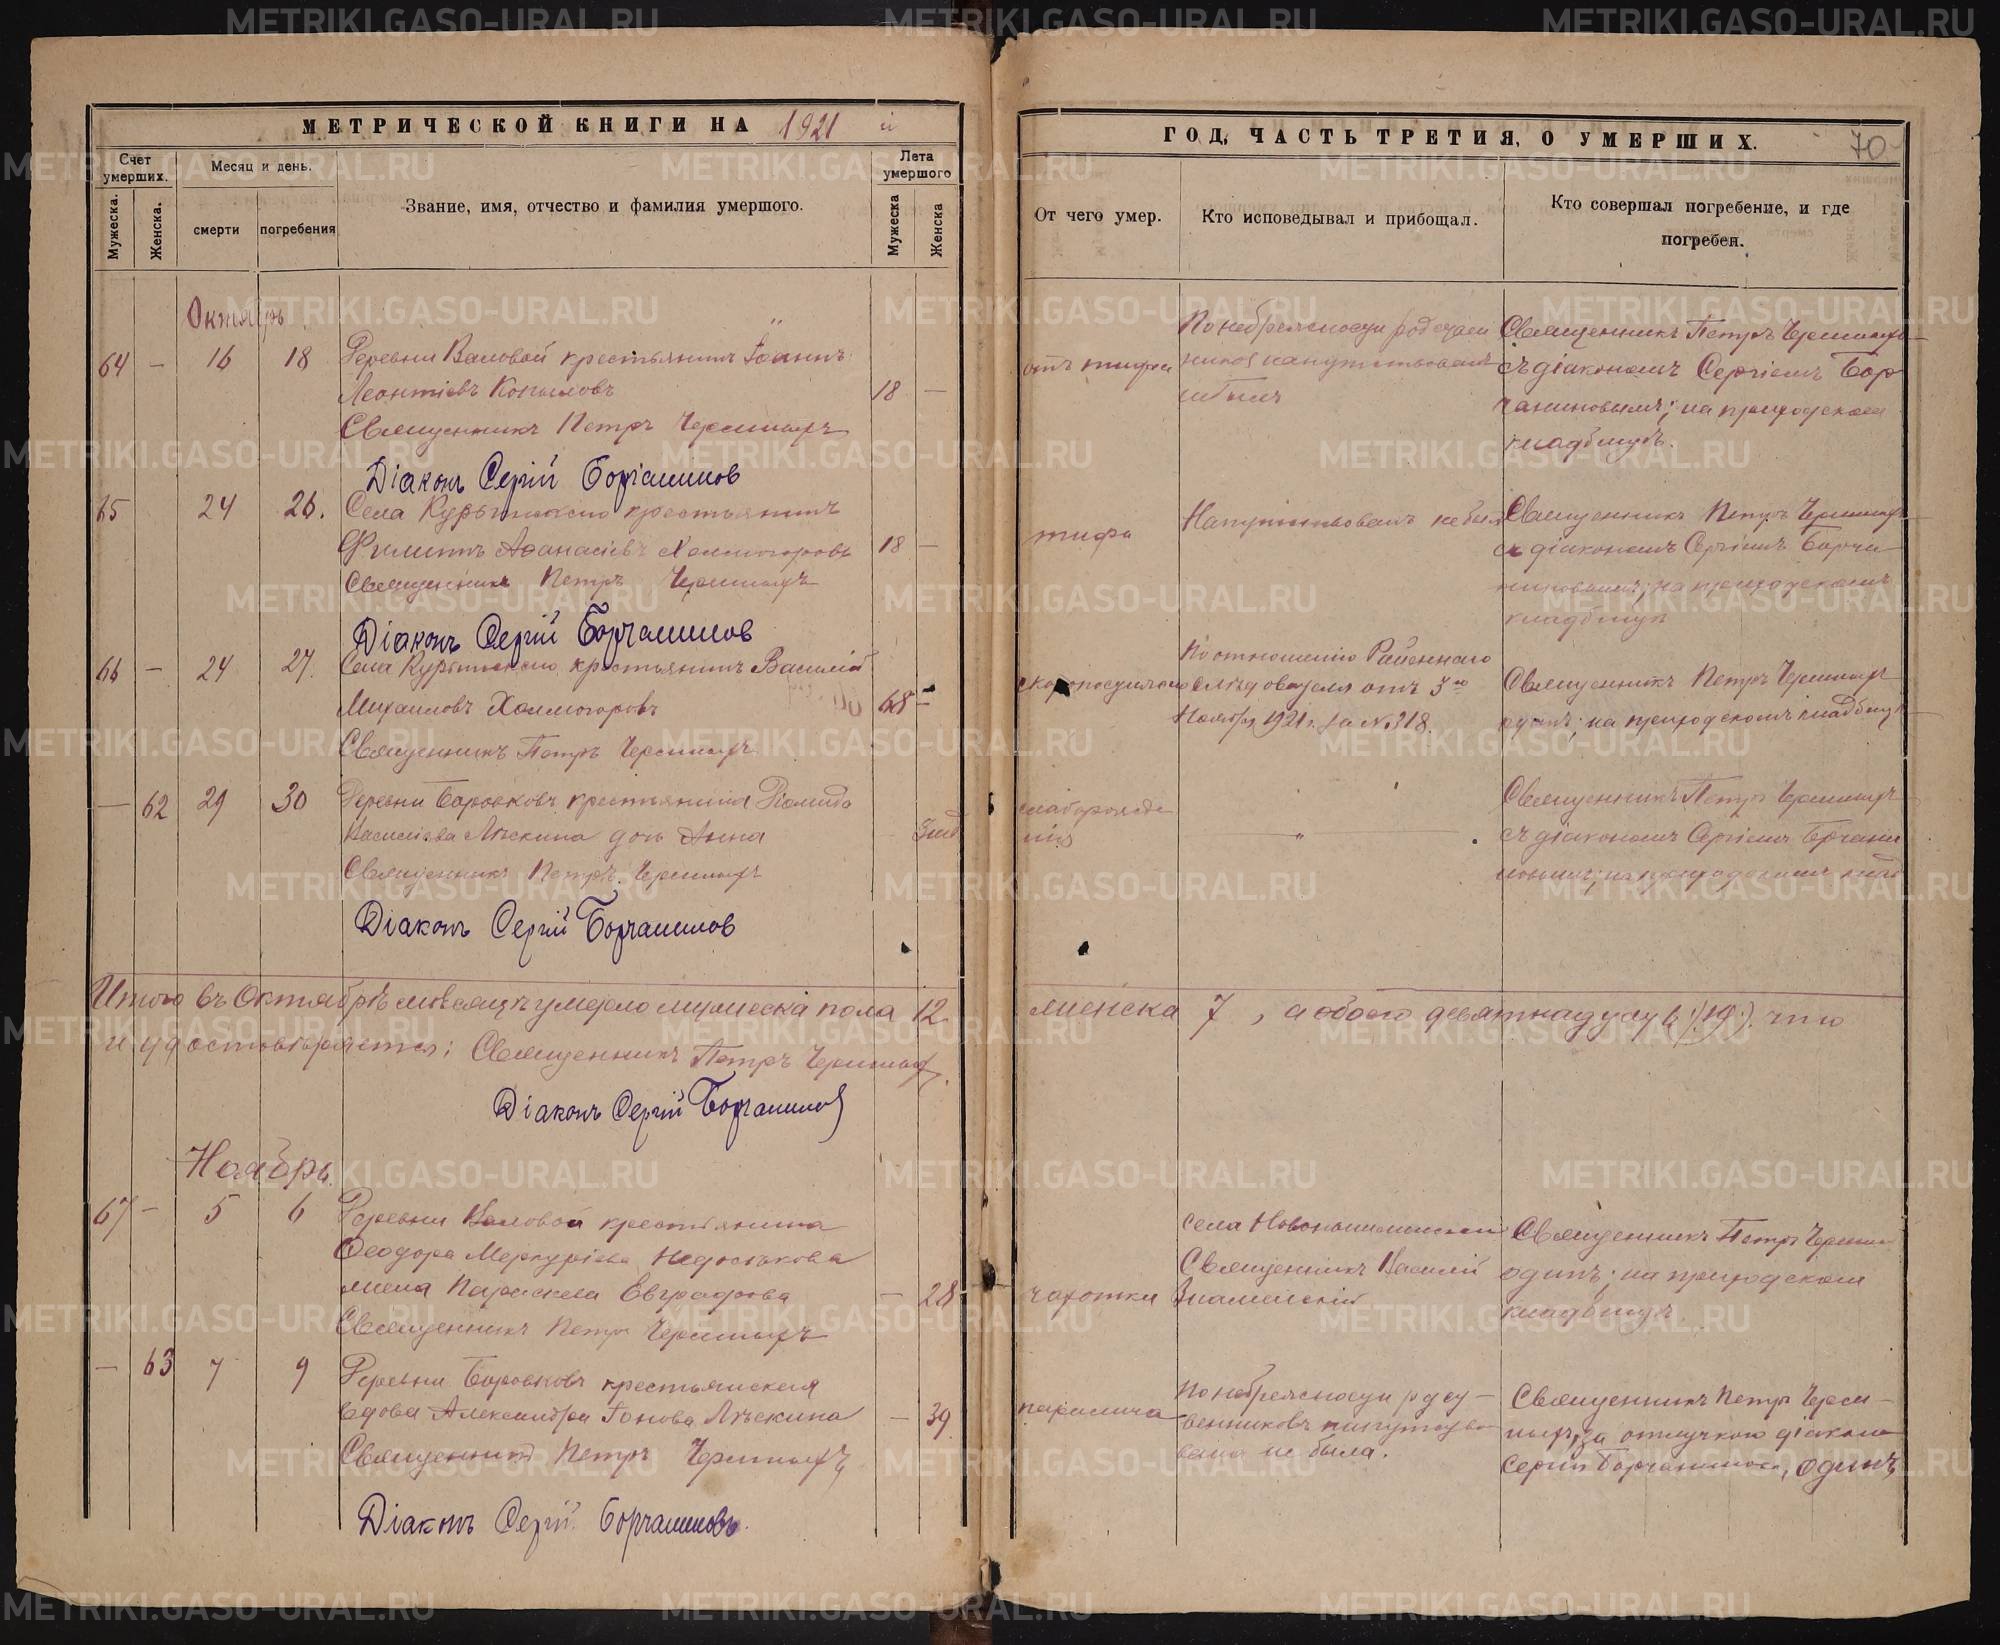 МЕТРИЧЕСКОЙ КНИГИ НА 1921 й
Счет умерших.
Месяц и день.
Звание, имя, отчество и фамилия умершого.
Лета умершого
Мужеска.
Женска.
смерти
погребения
Мужеска
Женска
Октябрь
64 — 16 18 Деревни Валовой крестьянинъ Іоаннъ
Леонтіевъ Копыловъ 18 —
Священникъ Петръ
Діаконъ Сергій Борчаниновъ
65 24 26. Села крестьянинъ
Филиппъ Аѳанасіевъ Холмогоровъ 18 —
Священникъ Петръ
Діаконъ Сергій Борчаниновъ
66 — 24 27. Села крестьянинъ Василій
Михаиловъ Холмогоровъ 68 —
Священникъ Петръ
— 62 29 30 Деревни Боровковъ крестьянина Діомида
Василіева Лѣскина дочь Анна
Священникъ Петръ
Діаконъ Сергій Борчаниновъ
Итого въ Октябрѣ мѣсяцѣ умерло мужеска пола 12
и удостовѣряется: Священникъ Петръ
Діаконъ Сергій Борчаниновъ
Ноябрь.
67 — 5 6 Деревни Валовой крестьянина
Ѳеодора Меркуріева Недоськова
жена Параскева Евграфова — 28
Священникъ Петръ
— 63 7 9 Деревни Боровковъ крестьянская
вдова Александра Іонова Лѣскина — 39
Священникъ Петръ
Діаконъ Сергій Борчаниновъ.
ГОД, ЧАСТЬ ТРЕТИЯ, О УМЕРШИХ. 70
От чего умер.
Кто исповедывал и прибощал.
Кто совершал погребение, и где погребен.
отъ тифа
По небрежности родствен
никовъ напутствованъ
не былъ
Священникъ Петръ
съ діакономъ Сергіемъ Бор
чаниновымъ; на приходскомъ
кладбищѣ.
тифа
Напутствованъ не былъ
Священникъ Петръ
съ діакономъ Сергіемъ Борча
ниновымъ; на приходскомъ
кладбищѣ
скоропостижно
По отношенію Районнаго
слѣдователя отъ 3го
Ноября 1921 г. за № 318.
Священникъ Петръ
одинъ; на приходскомъ кладбищѣ
слаборожде
нія
— „ —
Священникъ Петръ
съ діакономъ Сергіемъ Борчани
новымъ; на приходскомъ клад
женска 7, а обоего девятнадцать (19), что
чахотки
села
Священникъ Василій
Знаменскій
Священникъ Петръ
одинъ; на приходскомъ
кладбищѣ.
паралича
По небрежности родст-
венниковъ напутство
вана не была.
Священникъ Петръ
за отлучкою діакона
Сергія Борчанинова, одинъ
METRIKI.GASO-URAL.RU